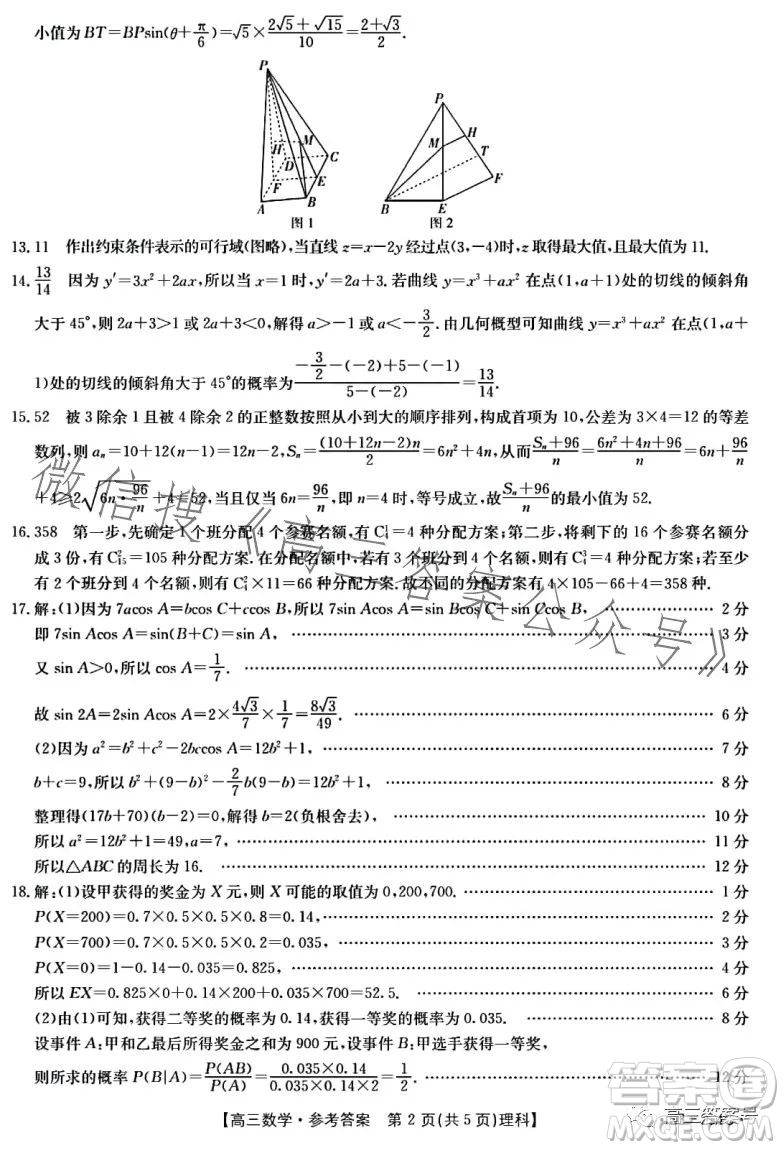 小值为BT=BPsin(θ+π/6)=√5×(2√5+√15)/10=(2+√3)/2.
P
M
H
D
C
F
E
A
B
图1
P
H
M
T
F
B
E
图2
13.11 作出约束条件表示的可行域(图略),当直线z=x-2y经过点(3,-4)时,z取得最大值,且最大值为11.
14.13/14 因为y′=3x²+2ax,所以当x=1时,y′=2a+3.若曲线y=x³+ax²在点(1,a+1)处的切线的倾斜角
大于45°,则2a+3>1或2a+3<0,解得a>-1或a<-3/2.由几何概型可知曲线y=x³+ax²在点(1,a+
1)处的切线的倾斜角大于45°的概率为(-3/2-(-2)+5-(-1))/(5-(-2))=13/14.
15.52 被3除余1且被4除余2的正整数按照从小到大的顺序排列,构成首项为10,公差为3×4=12的等差
数列,则aₙ=10+12(n-1)=12n-2,Sₙ=(10+12n-2)n/2=6n²+4n,从而(Sₙ+96)/n=(6n²+4n+96)/n=6n+96/n
+4≥2√(6n·96/n)+4=52,当且仅当6n=96/n,即n=4时,等号成立,故(Sₙ+96)/n的最小值为52.
16.358 第一步,先确定1个班分配4个参赛名额,有C₄¹=4种分配方案;第二步,将剩下的16个参赛名额分
成3份,有C₁₅²=105种分配方案.在分配名额中,若有3个班分到4个名额,则有C₄³=4种分配方案;若至少
有2个班分到4个名额,则有C₄²×11=66种分配方案.故不同的分配方案有4×105-66+4=358种.
17.解:(1)因为7acos A=bcos C+ccos B,所以7sin Acos A=sin Bcos C+sin Ccos B, 2分
即7sin Acos A=sin(B+C)=sin A, 3分
又sin A>0,所以cos A=1/7. 4分
故sin 2A=2sin Acos A=2×4√3/7×1/7=8√3/49. 6分
(2)因为a²=b²+c²-2bccos A=12b²+1, 7分
b+c=9,所以b²+(9-b)²-2/7b(9-b)=12b²+1, 8分
整理得(17b+70)(b-2)=0,解得b=2(负根舍去), 10分
所以a²=12b²+1=49,a=7, 11分
所以△ABC的周长为16. 12分
18.解:(1)设甲获得的奖金为X元,则X可能的取值为0,200,700. 1分
P(X=200)=0.7×0.5×0.5×0.8=0.14, 2分
P(X=700)=0.7×0.5×0.5×0.2=0.035, 3分
P(X=0)=1-0.14-0.035=0.825, 4分
所以EX=0.825×0+0.14×200+0.035×700=52.5. 6分
(2)由(1)可知,获得二等奖的概率为0.14,获得一等奖的概率为0.035. 8分
设事件A:甲和乙最后所得奖金之和为900元,设事件B:甲选手获得一等奖,
则所求的概率P(B|A)=P(AB)/P(A)=(0.035×0.14)/(0.035×0.14×2)=1/2. 12分
【高三数学·参考答案 第2页(共5页)理科】
微信搜《高三答案公众号》
高三答案号
作业帮
MXQE.COM